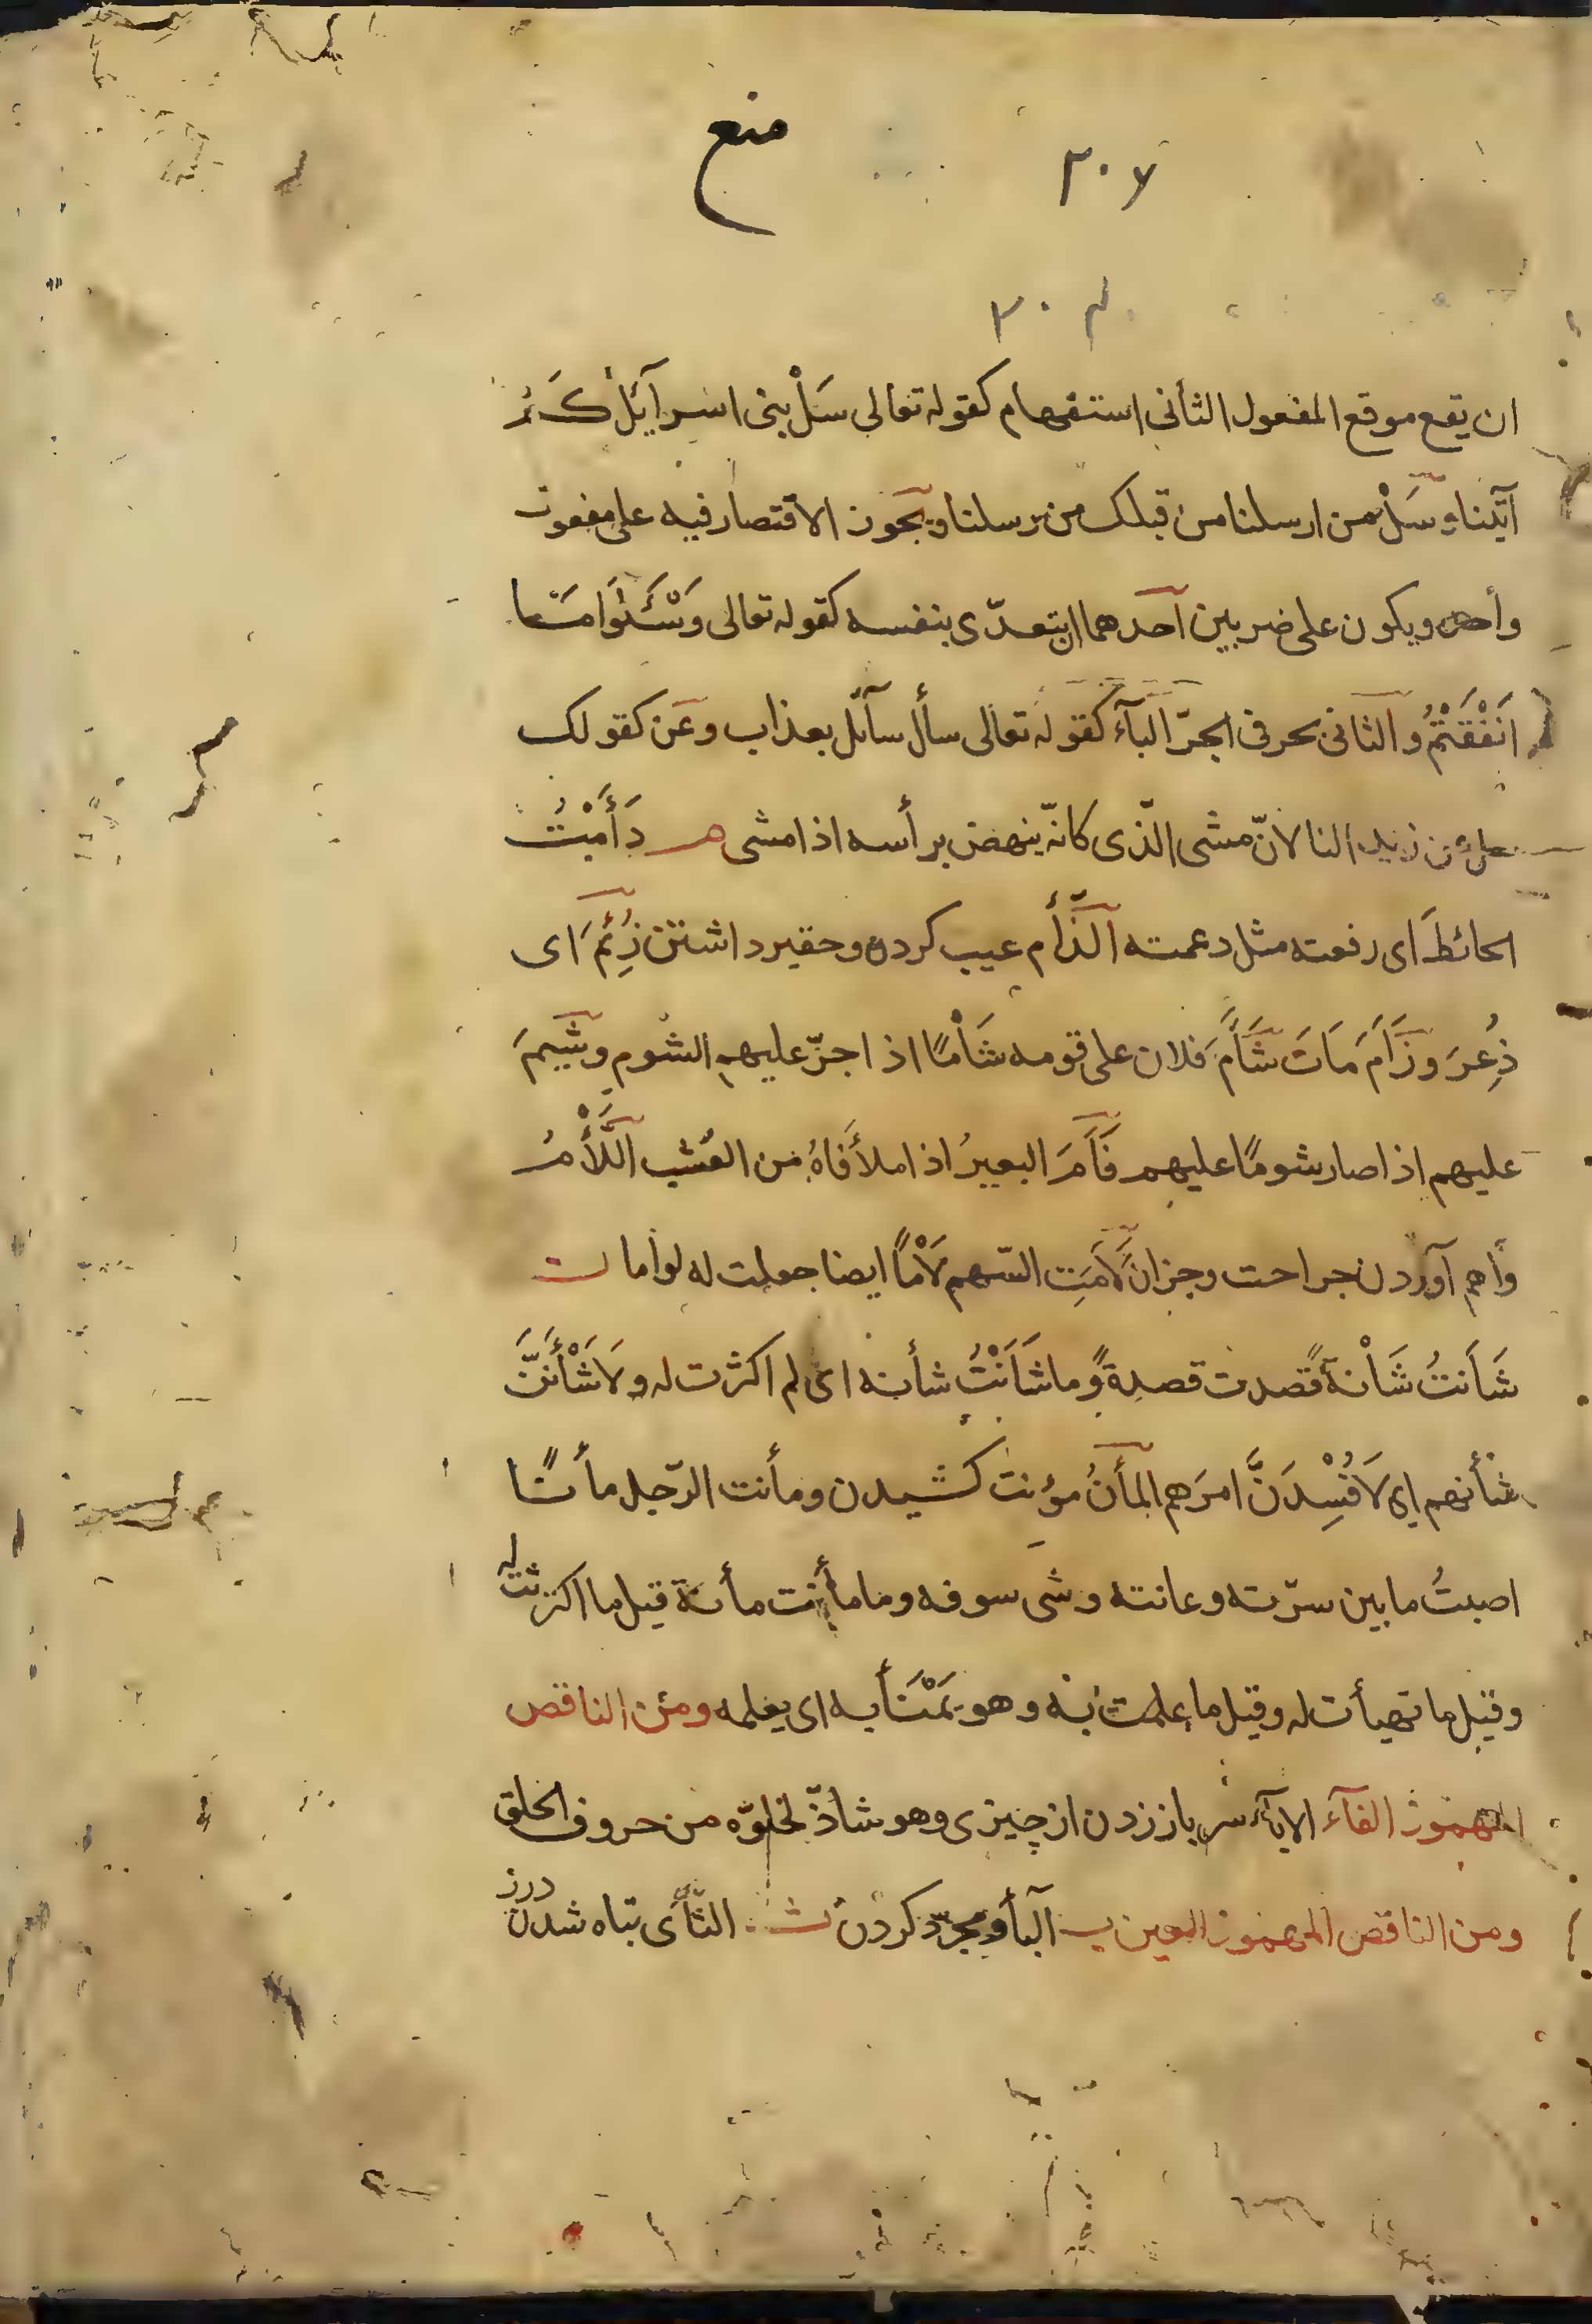 منع
٣٠٧
٣٠٤
ان يقع موقع المفعول الثانى استفهام كقوله تعالى سَلْ بنى اسرآئلَ كَمْ
آتينا وسَلْ من ارسلنا من قبلك من رسلنا ويجوز الاقتصار فيه على مفعول
وأحد ويكون على ضربين آحدهما ان يتعدّى بنفسه كقوله تعالى وَسْئَلُوَا مَا
اَنْفَقْتُمْ و الثانى بحرفى الجرّ الباَء كقوله تعالى سأل سآئل بعذاب وعَن كقولك
عن زيد النالانّ مشى الّذى كانّه ينهض برأسه اذا مشى مـ دَأَمْتُ
الحائطَ اى رفعته مثل دعمته الذَّأم عيب كردن وحقير داشتن زُئِمَ اى
ذُعِرَ وزَأَمَ مَاتَ شَأَمَ فلان على قومه شَأْمًا اذا اجرّ عليهم الشوم وشَيمَ
عليهم اذا صار شومًا عليهم فَأَمَ البعيرُ اذا ملأ فَاهُ من العُشب اللَّأْمُ
وأهم آوردن جراحت وجزان لَأَمَتِ السّهم لَأْمًا ايضا جعلت له لواما ن
شَأَنتُ شَأْنَهً قصدت قصدهً وما شَأَنْتُ شأنه اى لم اكثرت له ولَاَشْأَنَنَّ
شأنهم اى لَاَفْسِدَنَّ امرَهم المأنُ مؤنت كشيدن ومأنت الرّجل مأنًا
اصبتُ ما بين سرّته وعانته وشى سوفه وما مأنت مأنهَ قيل ما اكترثت له
وقيل ما تهيأت له وقيل ما علمت به وهو يَمْنَأُ به اى يعلمه ومن الناقص
المهموز الفآء الابآء سر باز زدن از چيزى وهو شاذّ لخلوّه من حروف الحلق
ومن الناقص المهموز العين ب البأو كردن ث الثّأى تباه شدن درز